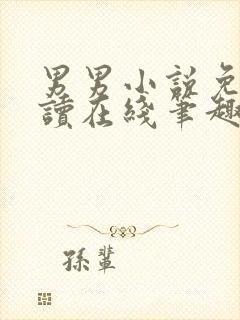 男男小说免
讀在綫筆趣
孫輩